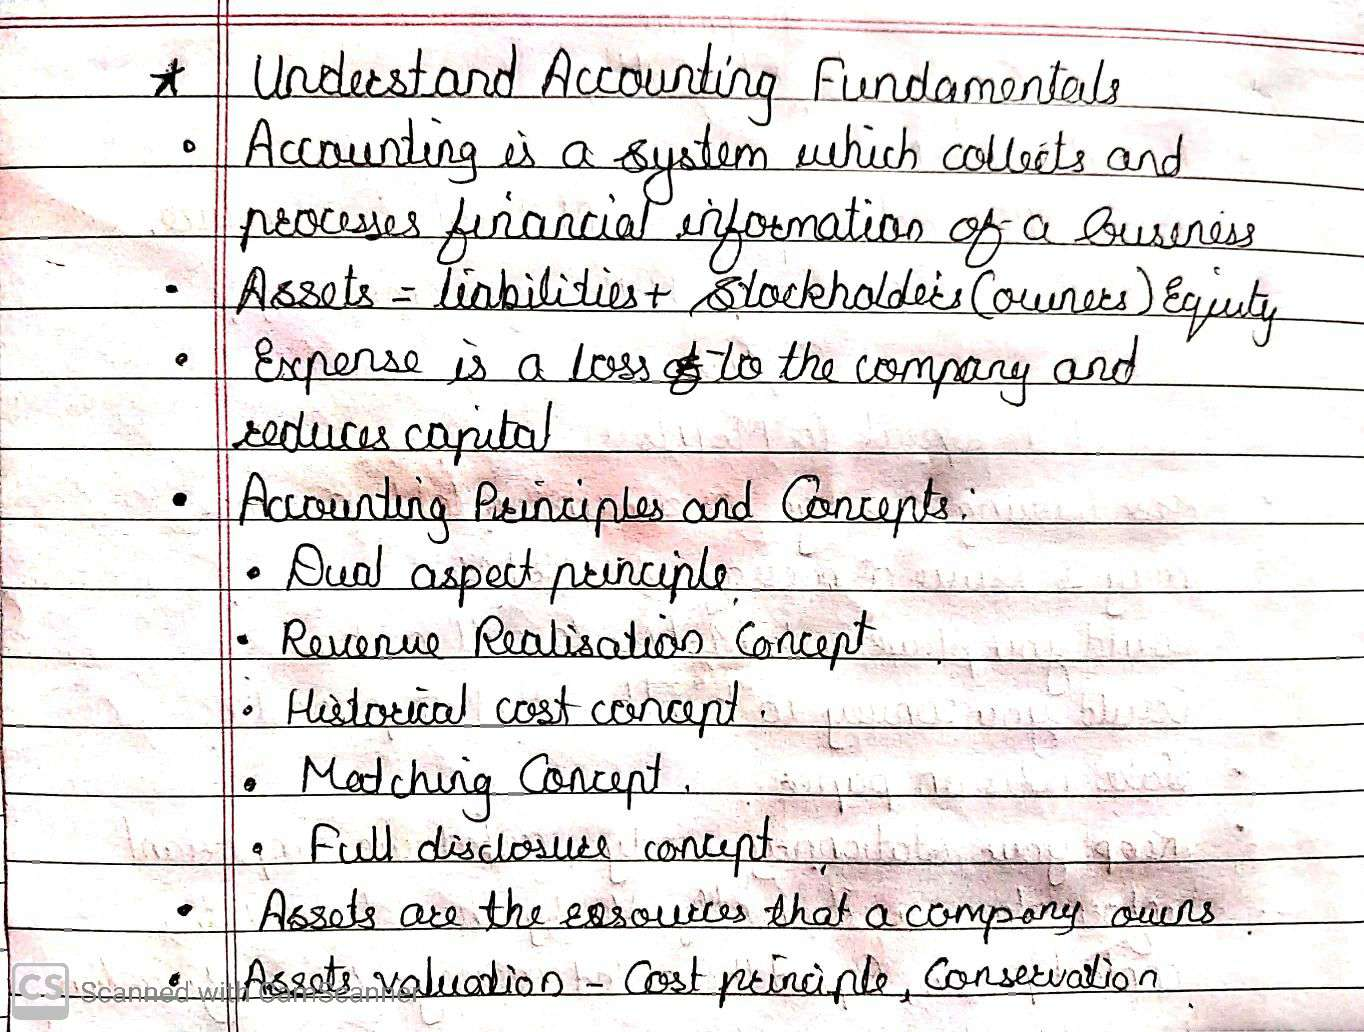 ★ Understand Accounting Fundamentals
• Accounting is a system which collects and
processes financial information of a business
• Assets = liabilities + Stockholders (owners) Equity
• Expense is a loss to the company and
reduces capital
• Accounting Principles and Concepts:
• Dual aspect principle.
• Revenue Realisation Concept
• Historical cost concept.
• Matching Concept.
• Full disclosure concept
• Assets are the resources that a company owns.
• Assets valuation - Cost principle, Conservation
CS Scanned with CamScanner